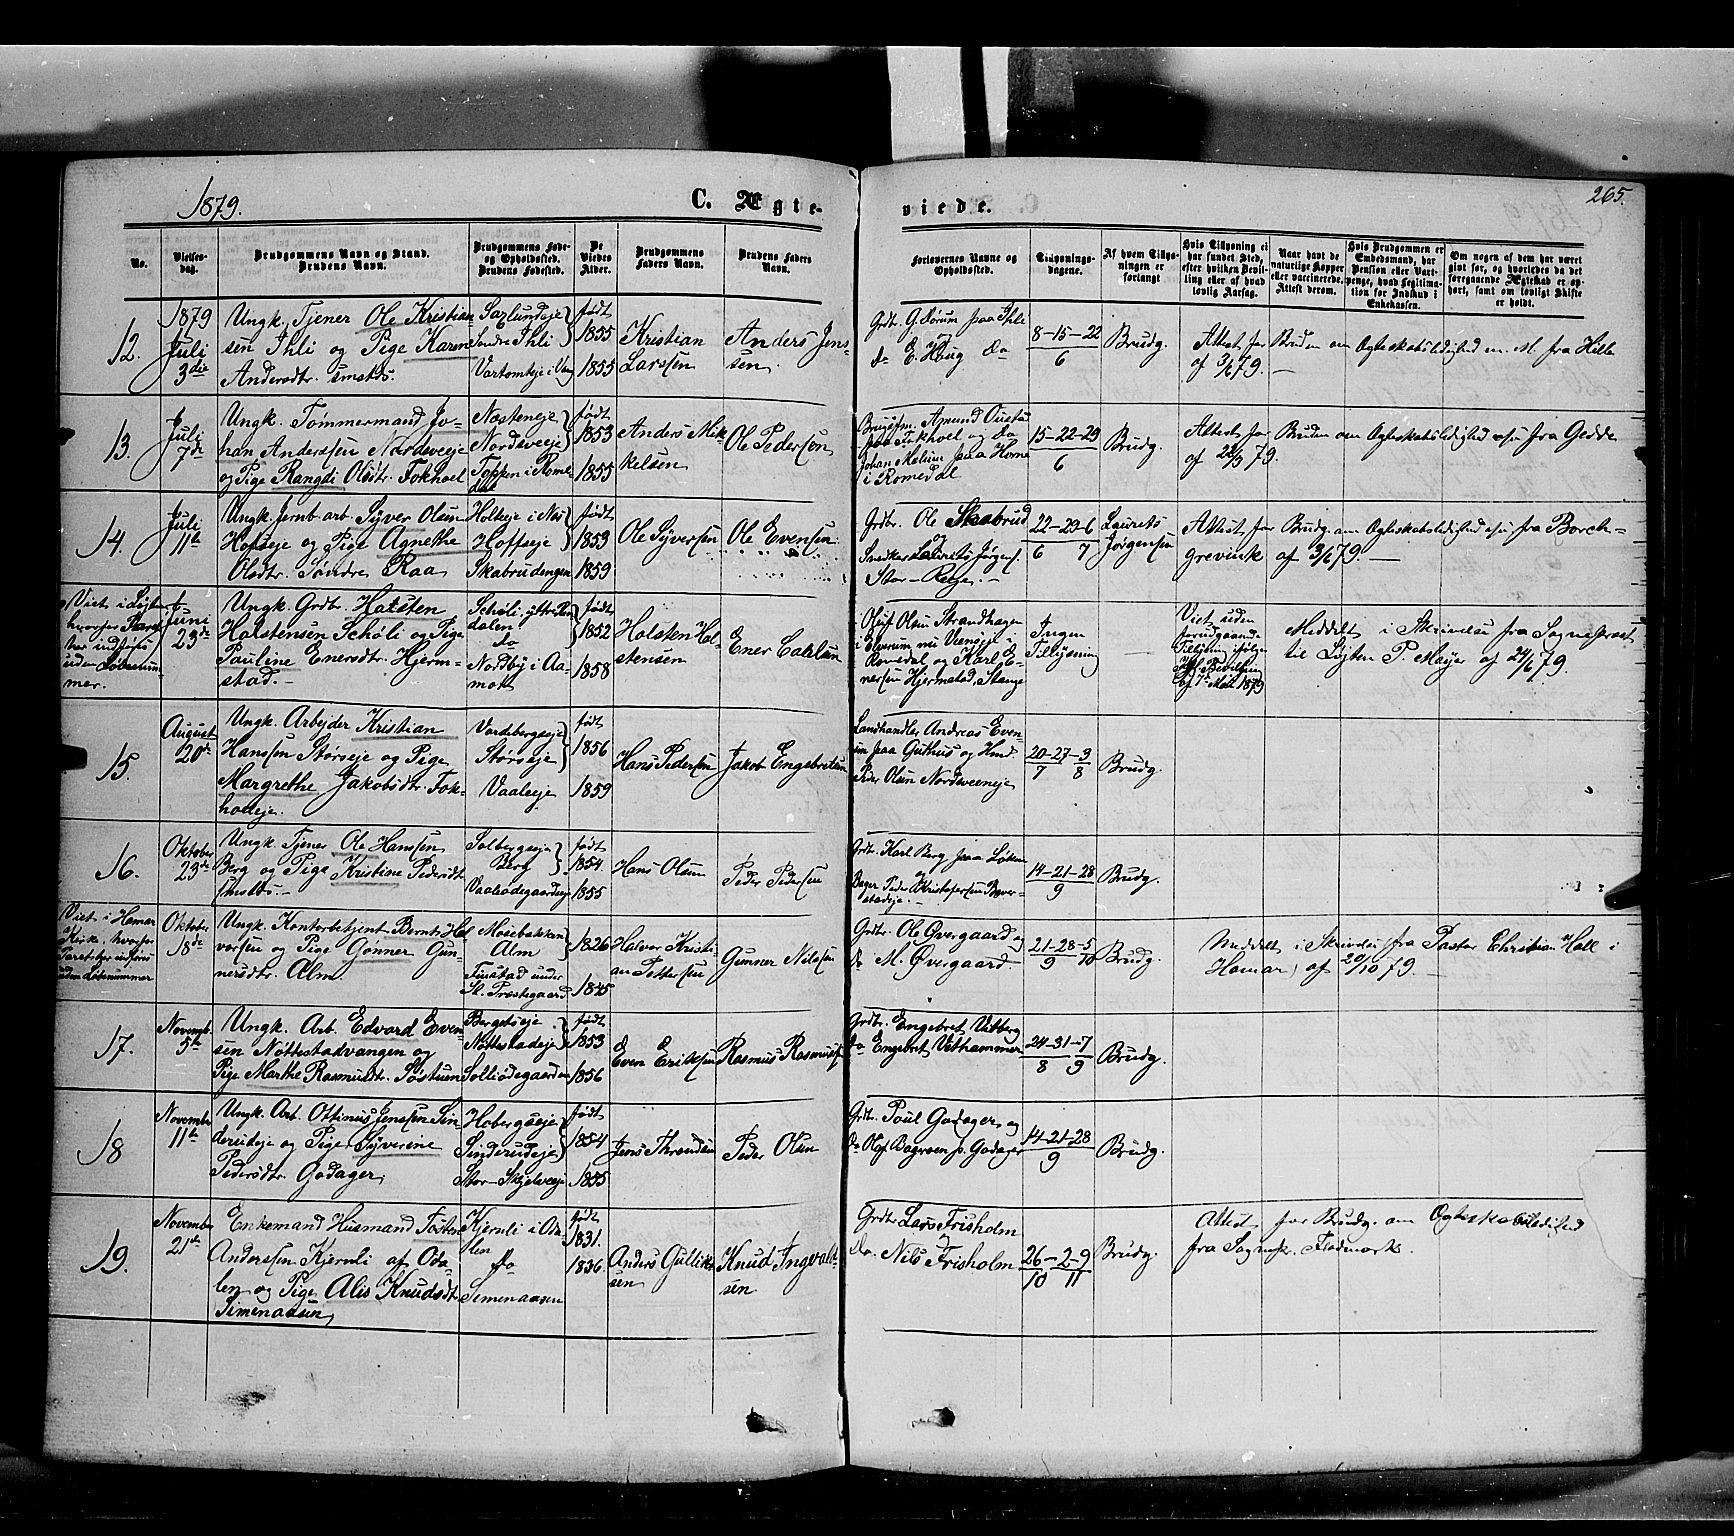 1879.
C. Ægte-
viede.
265.
No.
Vielses-
dag.
Brudgommens Navn og Stand.
Brudens Navn.
Brudgommens Føde-
og Opholdssted.
Brudens Fødested.
De
Viedes
Alder.
Brudgommens
Faders Navn.
Brudens Faders
Navn.
Forlovernes Navne og
Opholdssted.
Tillysnings-
dagene.
Af hvem Tillys-
ningen er
forlangt
Hvis Tillysning ei
har fundet Sted,
efter hvilken Bevil-
ling eller af hvad
lovlig Aarsag.
Naar havt de
naturlige Kopper
eller vaccinerede.
Attest derom.
Hvis Brudgommen er
Embedsmand, har
Pension eller Vart-
penge, hvad Legitima-
tion for Indskud i
Enkekassen.
Om nogen af dem har været
gift før, og hvorledes da det
foregaaende Ægteskab er op-
hørt, samt om lovligt Skifte
er holdt.
12.
1879
Juli
3die
Ungk. Tjener Ole Kristian-
sen Ihli og Pige Karen
Andersdtr.
Saxlundeje
Søndre Ihli
født
1855
1855
Kristian
Larssen
Anders Jens-
sen.
Grdbr. G. Dørum paa Ihli
og
do E. Haug do
8-15-22
6
Brudg.
Attest for Bruden om Ægteskabsledighed
af 3/6 79. —
13.
Juli
7de
Ungk. Tømmermand Jo-
han Anderssen Nordsveeje
og Pige Rangdi Olsdtr. Fokhoel
Næsteneje
Nordsveeje
Toppen i Rome
dal
født
1853
1855
Anders Mik-
kelsen
Ole Pedersen
Johan Mælum paa Horne
i Romedal
15-22-29
6
Brudg.
Attest for Bruden om Ægteskabsledighed fra Gedde
af 22/3 79.
14.
Juli
11te
Ungk. Jernb.arb. Syver Olsen
Hofseje og Pige Agnethe
Olsdtr. Søndre Raa
Holteje i Næs
Hoffseje
Skabrudengen
født
1853
1859
Ole Syversen
Ole Evensen
Grdbr. Ole Skabrud
og
Snedker Laurits Jørgens.
22-29-6
6 7
Laurits
Jørgensen
Attest for Brudg. om Ægteskabsledighed fra Borch-
grevink af 3/6 79. —
Viet i Løiten
hvorfor
her indføres
uden Løbenum-
mer.
Juni
23de
Ungk. Grdbr. Halsten
Halstensen Schøli og Pige
Pauline Enersdtr. Hjerm-
stad.
Schøli Østerdalen
do
Nordby i Aa-
mot
født
1852
1858
Halsten Hal-
stensen
Oluf Olsen Strandhagen
i Elverum
Romedal og Karl E-
nersen Hjermstad, Stange
Ingen
Tillysning
—
Viet uden
forudgaaende
Tillysning ifølge
Kgl. Bevilling
af 7de Mai 1879
Meddelt i Skrivelse fra Sognepræst
til Løiten P. Meyer af 24/6 79.
15.
August
20de
Ungk. Arbejder Kristian
Hanssen Størseje og Pige
Margrethe Jakobsdtr. Fok-
hoeleje.
Vardebergseje
Størseje
Vaaleeje
født
1856
1859
Hans Pedersen
Jakob Engebretsen
Landhandler Andreas Even-
sen paa Guthus og Hmd.
Peder Olsen Nordsveenje
20-27-3
7 8
Brudg.
16.
Oktober
23de
Ungk. Tjener Ole Hanssen
Berg og Pige Kristine Pedersdtr.
Solbergseje
Berg
født
1854.
1855
Hans Olsen
Peder Pedersen
Grdbr. Karl Berg paa Løken
og
14-21-28
9
Brudg.
Viet i Hamar
Kirke, hvorfor
Parret her indføres
uden Løbenummer
Oktober
18de
Ungk. Kontorbetjent Bernt Hal-
vorsen og Pige Gønner Gun-
nersdtr. Alm
Mosebakken
Alm
Finstad under
St. Præstegaard
1826
1845
Halvor Kristi-
an Pettersen
Gunner Nilssen
Grdbr. Ole Øvergaard og
do M. Øvergaard.
21-28-5
9 10
Brudg.
Meddelt i Skrivelse fra Pastor Christian Hall i
Hamar, af 20/10 79. —
17.
Novemb.
5te
Ungk. Arb. Edvard Even-
sen Nøttestadvangen og
Pige Marthe Rasmusdtr. Søstuen
Bergetøeje
Nøttestadeje
Solliødegaarden
født
1853
1856
Even Erikssen
Rasmus Rasmuss.
Grdbr. Engebret Vitberg
do Engebret Vithammer
24-31-7
8 9
Brudg.
18
Novemb.
11te
Ungk. Arb. Ottinus Jenssen Sin-
derudeje og Pige Syverine
Pedersdtr. Godager
Hobergseje
Sinderudeje
Stor-Skjelveeje
født
1854
1855
Jens Throndsen
Peder Olsen
Grdbr. Poul Godager og
do Olaf Bagreen p. Godager
14-21-28
9
Brudg.
19.
November
21de
Enkemand Husmand Tosten
Anderssen Kjernli af Oda-
len og Pige Alis Knudsdtr.
Simenaasen
Kjernli i Oda-
len
do
Simenaasen
født
1831.
1836.
Anders Gullik-
sen
Knud Ingvald-
sen
Grdbr. Lars Frisholm
og
do. Nils Frisholm
26-2-9
10 11
Brudg.
Attest for Brudg. om Ægteskabsledighed
fra Sognepr. Fladmark.